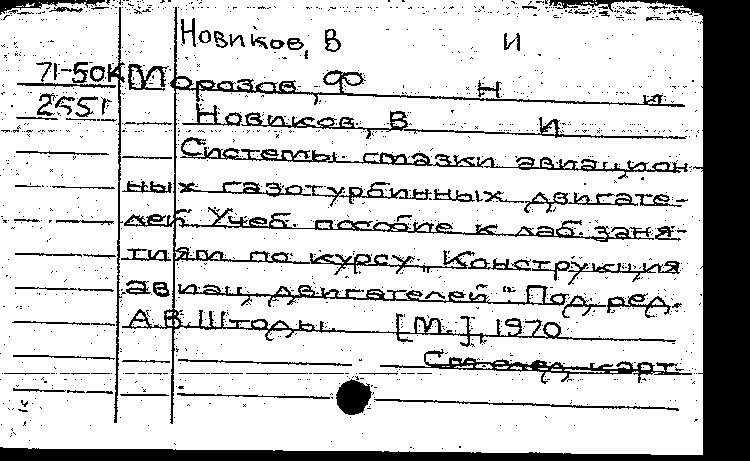 Новиков, В И
71-50К Морозов, Ф Н и
2551 Новиков, В И
Системы смазки авиацион
ных газотурбинных двигате-
лей Учеб. пособие к лаб. заня-
тиям по курсу „Конструкция
авиац. двигателей". Под ред.
А.В. Штоды [М.], 1970
См след. карт.